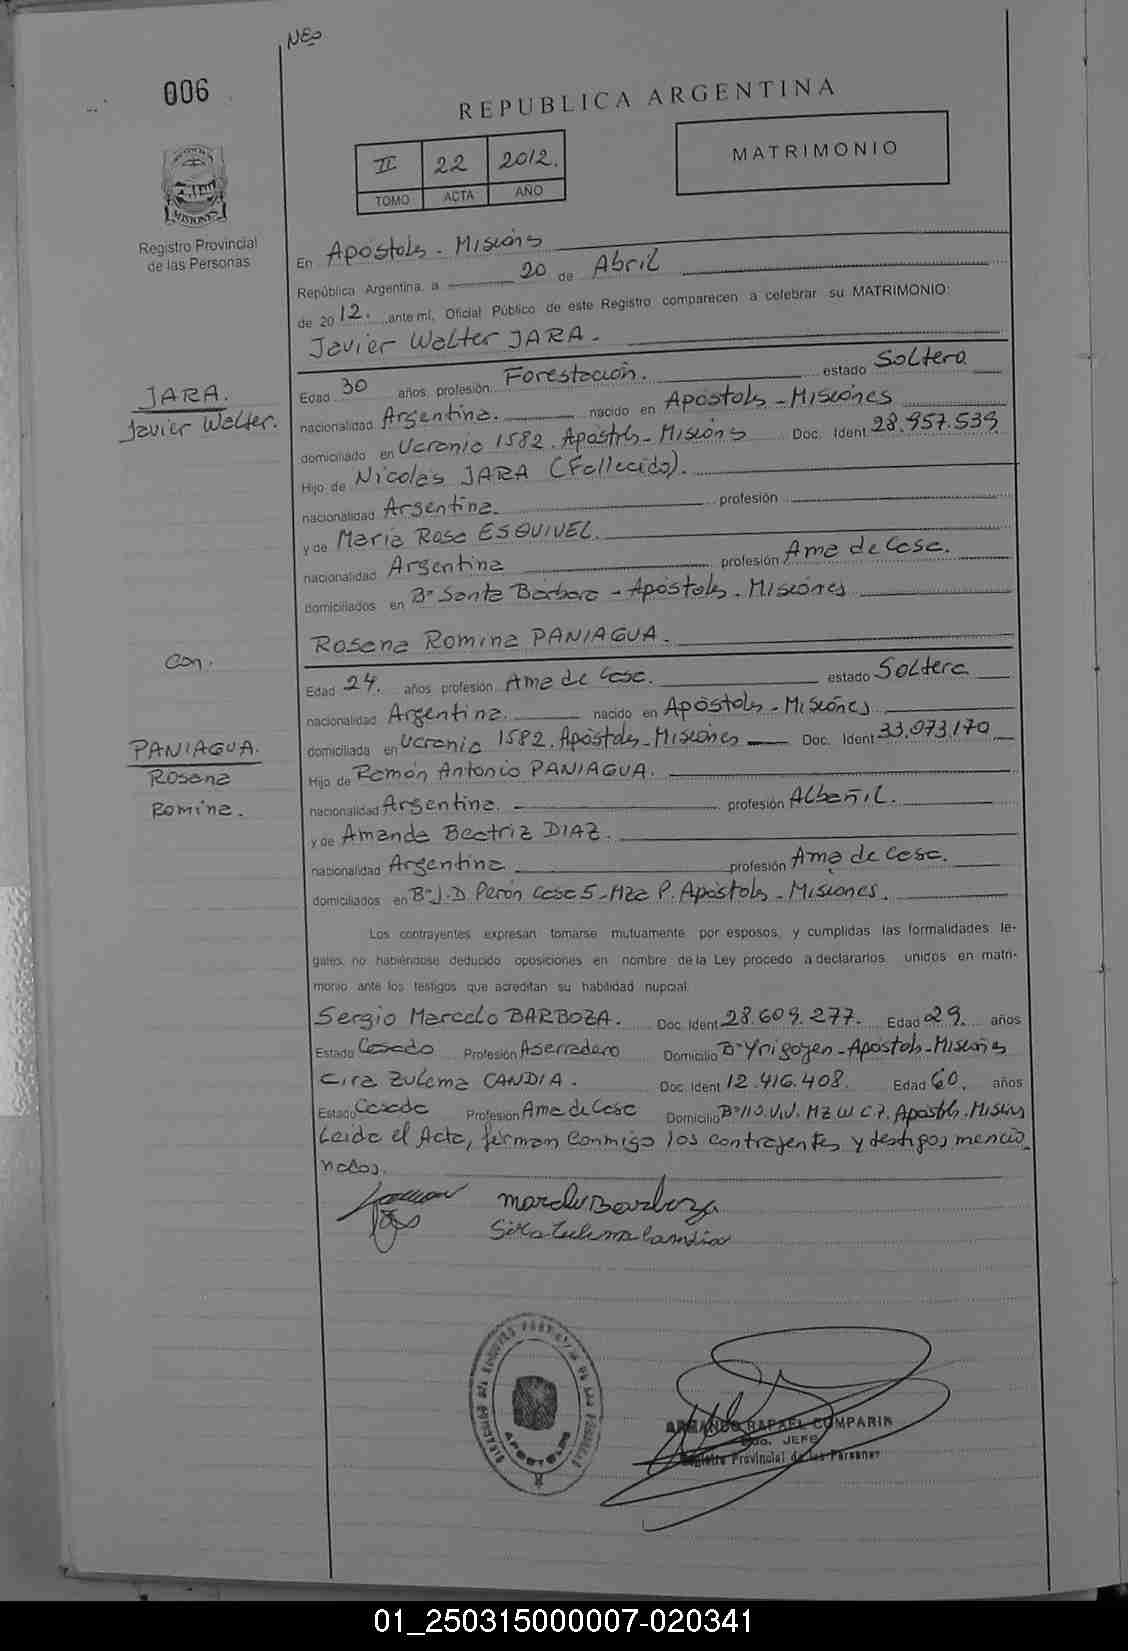 NEo
006
REPUBLICA ARGENTINA
II 22 2012.
TOMO ACTA AÑO
MATRIMONIO
MISIONES
Registro Provincial
de las Personas
En Apóstoles - Misiones
República Argentina, a 20 de Abril
de 2012. ,ante mí, Oficial Público de este Registro comparecen a celebrar su MATRIMONIO:
Javier Walter JARA.
JARA.
Javier Walter.
Edad 30 años, profesión Forestación. estado Soltero
nacionalidad Argentina. nacido en Apóstoles - Misiones
domiciliado en Ucrania 1582. Apóstoles - Misiones Doc. Ident 28.957.539
Hijo de Nicolás JARA (Fallecido).
nacionalidad Argentina. profesión
y de María Rosa ESQUIVEL.
nacionalidad Argentina profesión Ama de Casa.
domiciliados en Bº Santa Bárbara - Apóstoles - Misiones
Rosana Romina PANIAGUA.
Con.
PANIAGUA.
Rosana
Romina.
Edad 24. años profesión Ama de Casa. estado Soltera
nacionalidad Argentina. nacido en Apóstoles - Misiones
domiciliada en Ucrania 1582. Apóstoles - Misiones Doc. Ident 33.073.170
Hijo de Ramón Antonio PANIAGUA.
nacionalidad Argentina. profesión Albañil.
y de Amanda Beatriz DIAZ.
nacionalidad Argentina profesión Ama de Casa.
domiciliados en Bº J.D. Perón Casa 5 - Mza P. Apóstoles - Misiones.
Los contrayentes expresan tomarse mutuamente por esposos, y cumplidas las formalidades le-
gales, no habiéndose deducido oposiciones en nombre de la Ley procedo a declararlos unidos en matri-
monio ante los testigos que acreditan su habilidad nupcial.
Sergio Marcelo BARBOZA. Doc. Ident 28.609.277. Edad 29. años
Estado Casado Profesión Aserradero Domicilio Bº Yrigoyen - Apóstoles - Misiones
Cira Zulema CANDIA. Doc. Ident 12.416.408. Edad 60. años
Estado Casada Profesion Ama de Casa Domicilio Bº 110. Viv. Mz W C.7. Apóstoles. Misiones
Leída el Acta, firman conmigo los contrayentes y testigos mencio
nados.
Marcelo Barboza
Sira Zulema Candia
APOSTOLES
ARMANDO RAFAEL COMPARIN
JEFE
Registro Provincial de las Personas
01_250315000007-020341